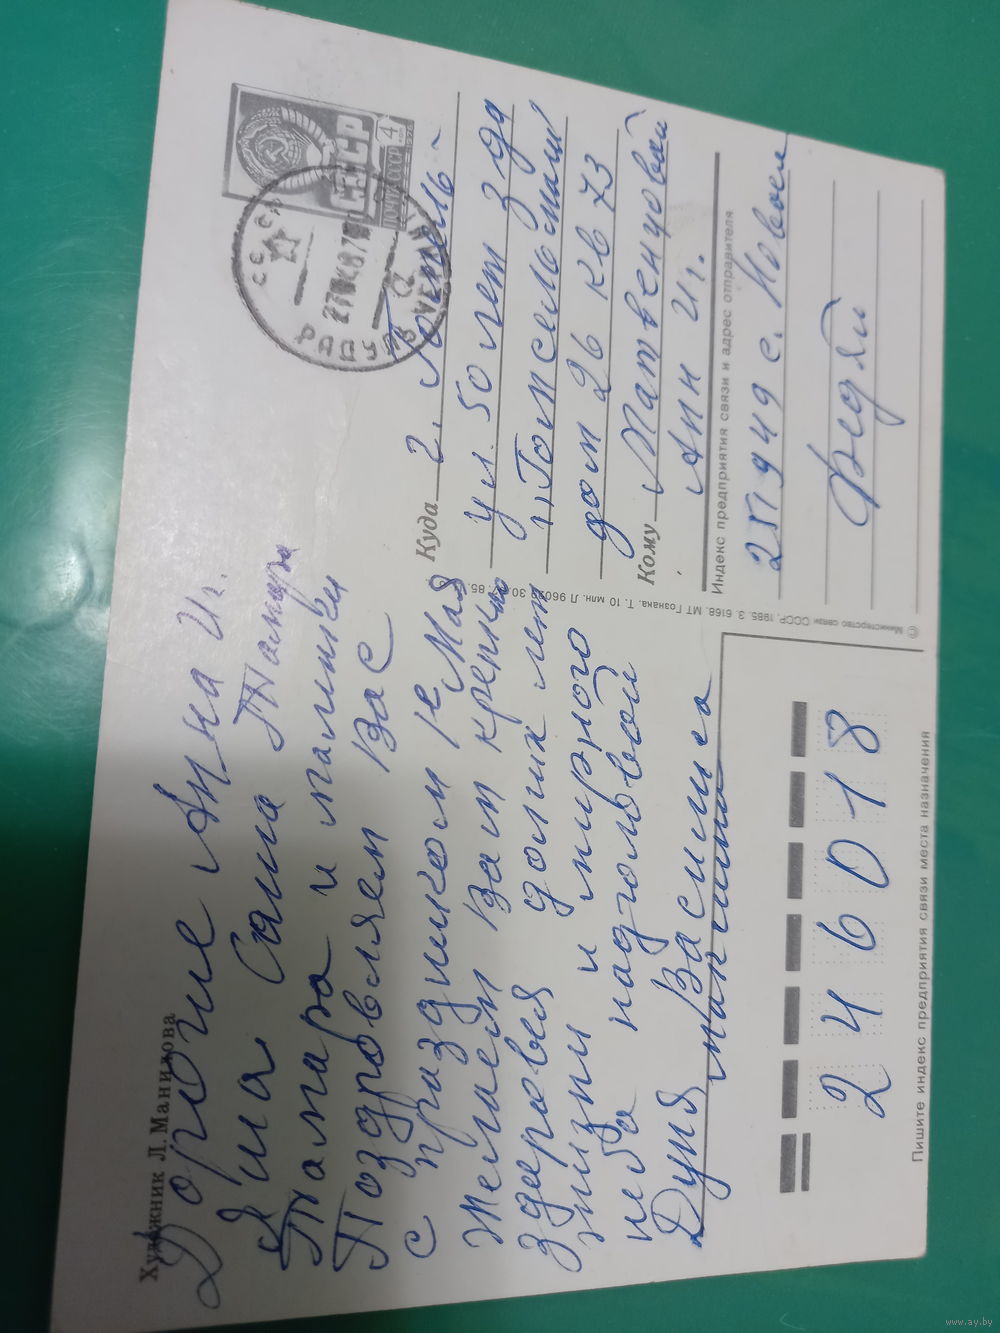 Художник Л. Манилова
Дорогие Анна Иг.
Яша Саша Тамара
Тамара и малыши
Поздровляем Вас
с праздником 1е Мая
Желаем Вам крепко
здоровья долих лет
жизни и мирного
неба надголовой
Дуня Василина
СССР
ПОЧТА СССР 4
СССР
27 04 87
Куда г. Гомель
ул. 50 лет з-да
"Гомсельмаш"
дом 26 кв 73
Кому Матвенцовой
Анн Иг.
Индекс предприятия связи и адрес отправителя
с. Новоел
Федяй
© Министерство связи СССР. 1985. З. 6168. МТ Гознака. Т. 10 млн. Л 85.
246018
Пишите индекс предприятия связи места назначения
www.ay.by